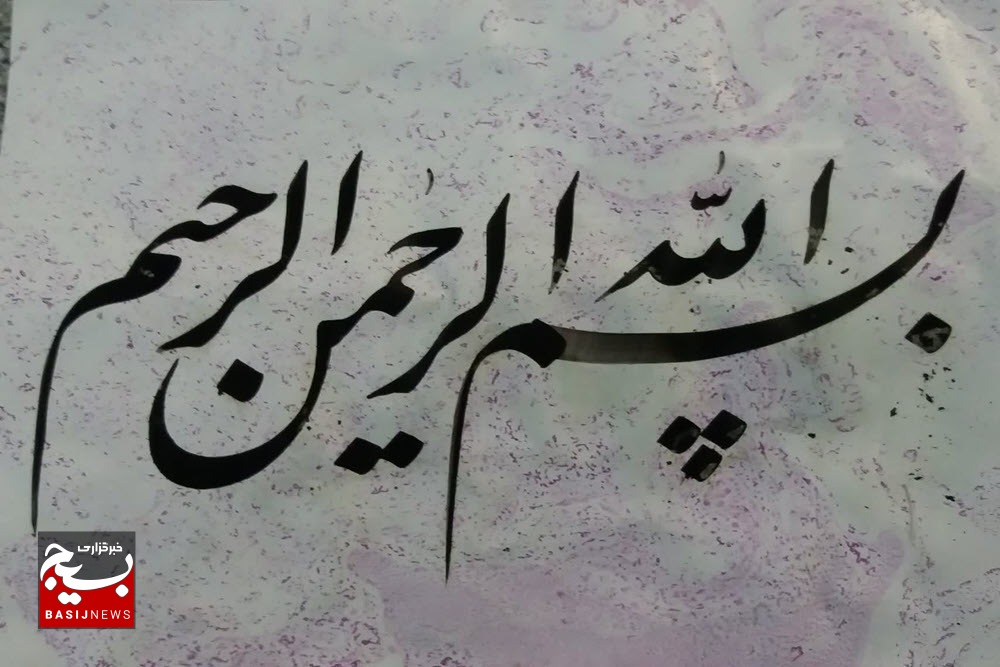 بسم الله الرحمن الرحیم
خبرگزاری
بسیج
BASIJNEWS